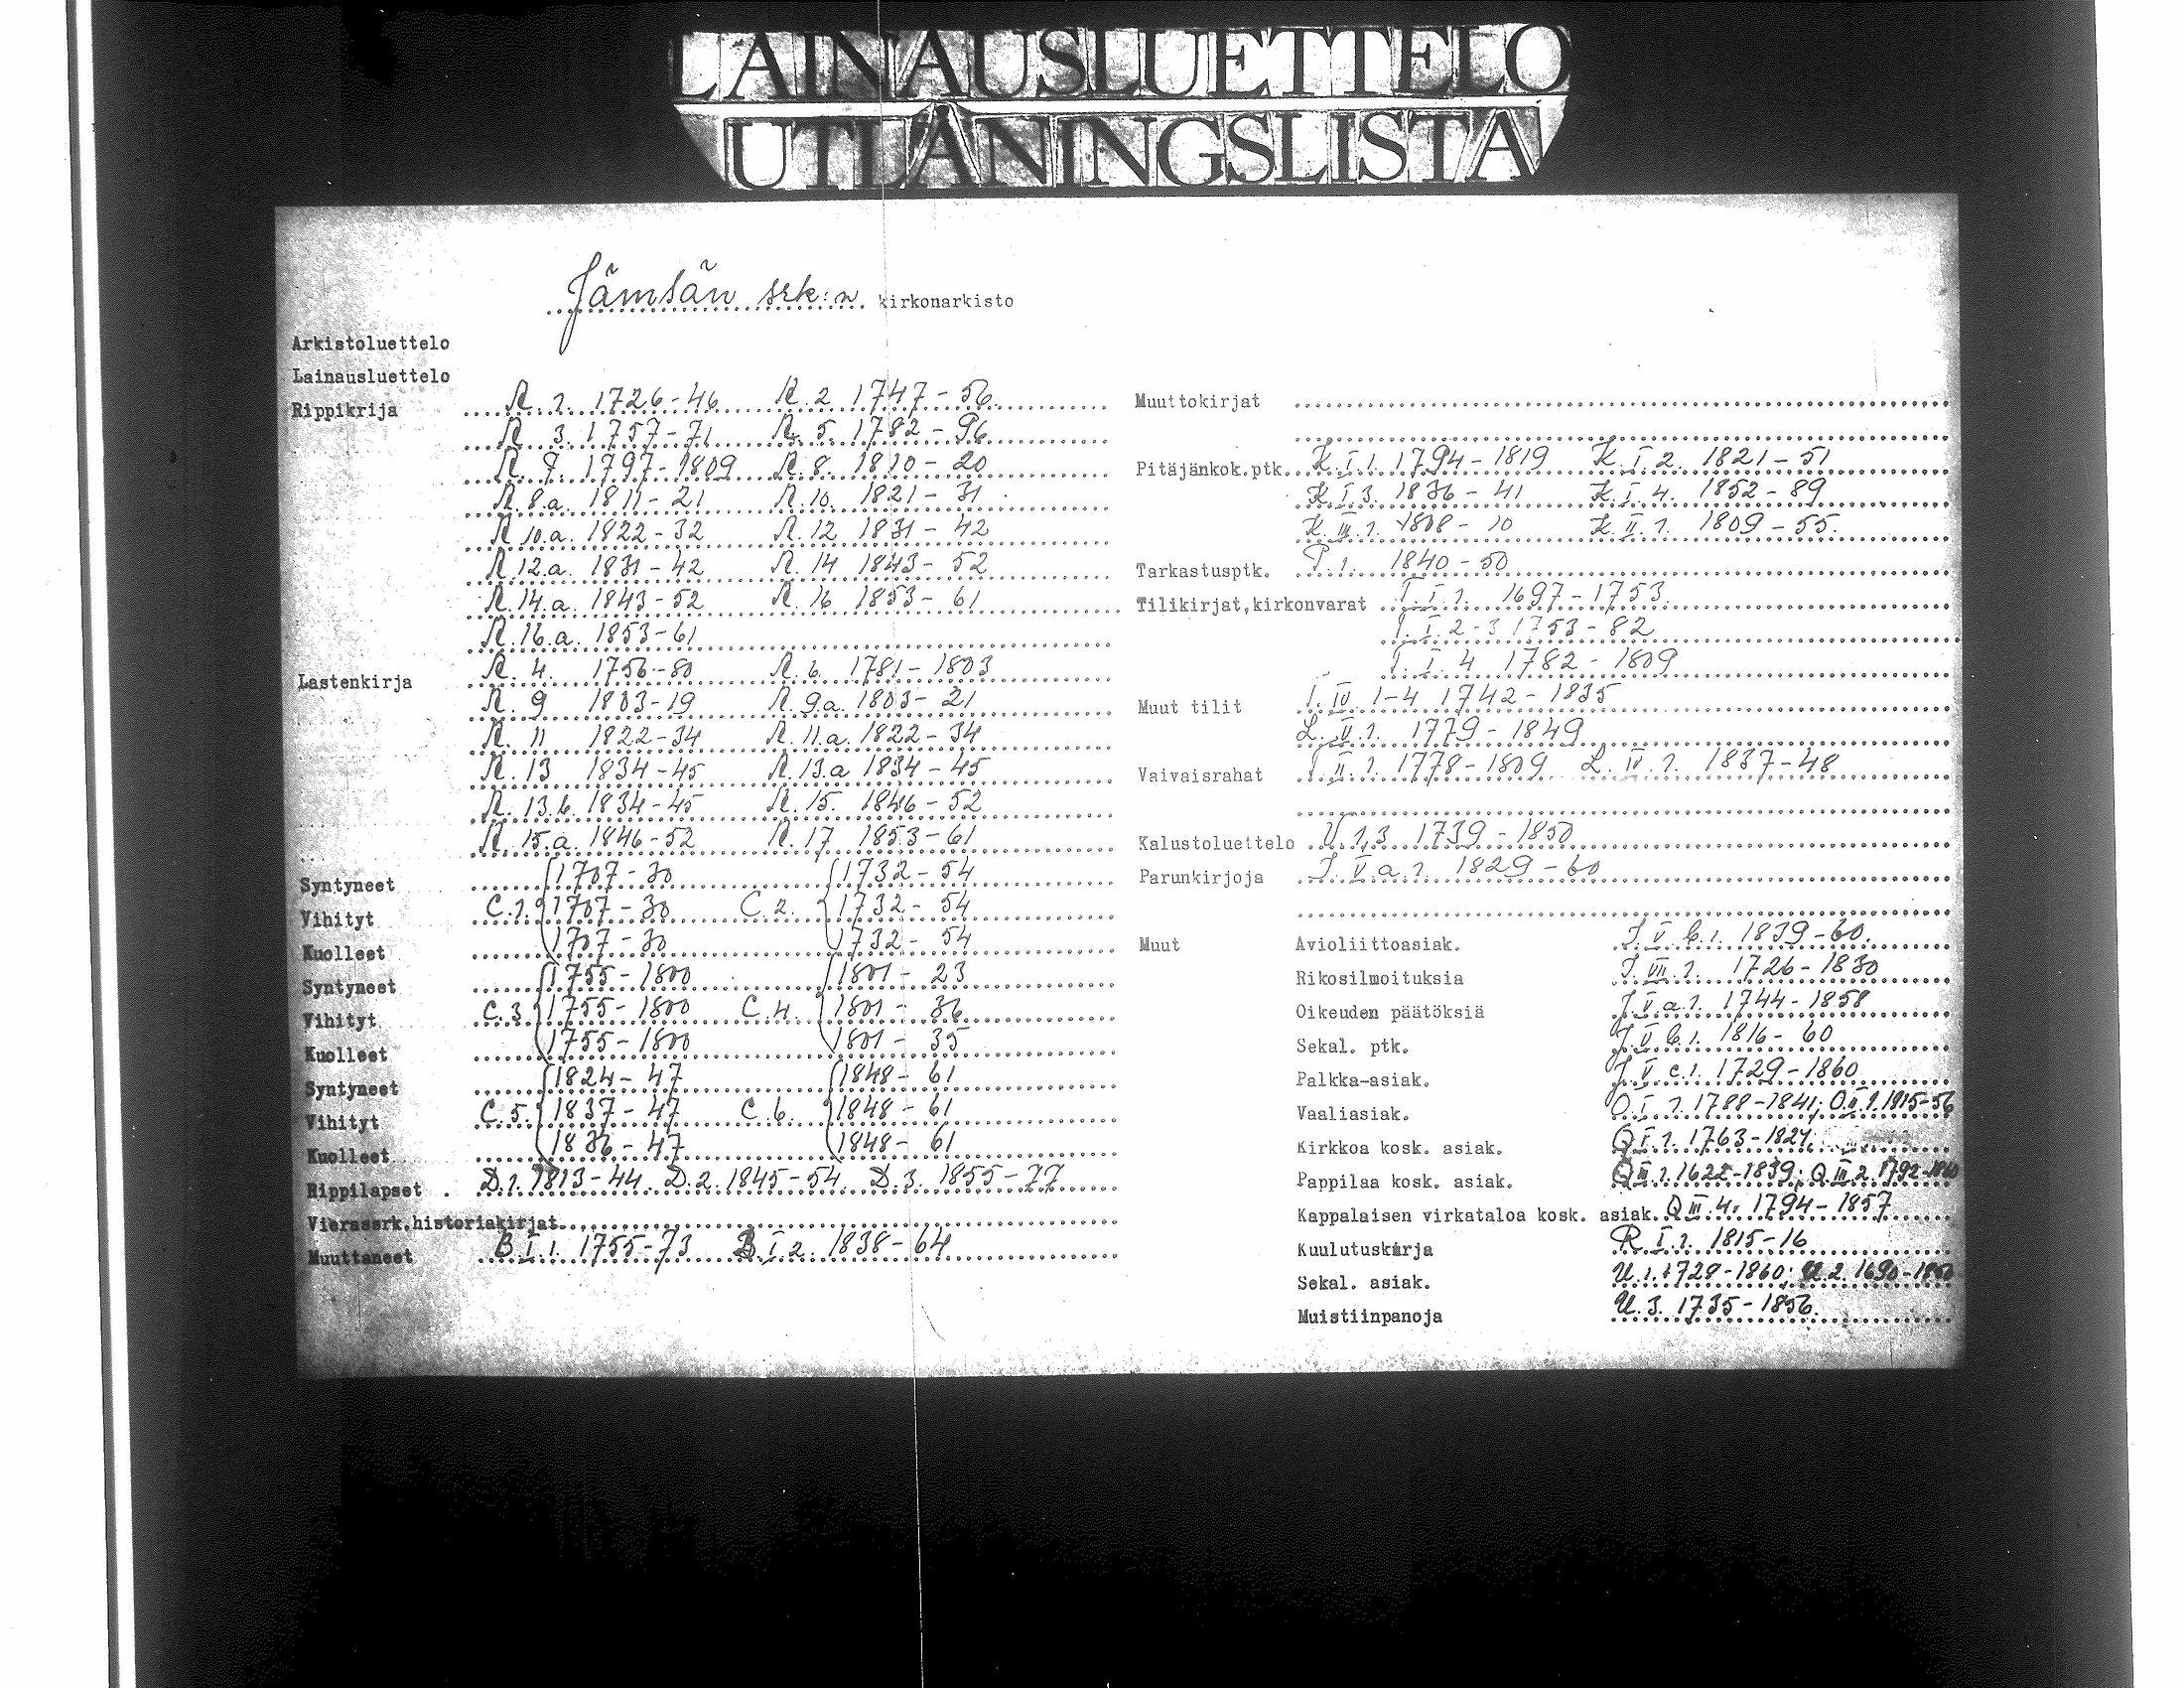 LAINAUSLUETTELO
UTLÅNINGSLISTA
Jämsän srk:n kirkonarkisto
Arkistoluettelo
Lainausluettelo
Rippikrija R. 1. 1726-46 R. 2 1747-56
R. 3. 1757-71 R. 5. 1782-96
R. 7. 1797-1809 R. 8. 1810-20
R. 8.a. 1811-21 R. 10. 1821-31
R. 10.a. 1822-32 R. 12 1831-42
R. 12.a. 1831-42 R. 14 1843-52
R. 14.a. 1843-52 R. 16 1853-61
R. 16.a. 1853-61
Lastenkirja R. 4. 1756-80 R. 6. 1781-1803
R. 9 1803-19 R. 9.a. 1803-21
R. 11 1822-34 R. 11.a. 1822-34
R. 13 1834-45 R. 13.a 1834-45
R. 13.b. 1834-45 R. 15. 1846-52
R. 15.a. 1846-52 R. 17 1853-61
Syntyneet 1707-30 1732-54
Vihityt C. 1. 1707-30 C. 2. 1732-54
Kuolleet 1707-30 1732-54
Syntyneet 1755-1800 1801-23
Vihityt C. 3. 1755-1800 C. 4. 1801-36
Kuolleet 1755-1800 1801-35
Syntyneet 1824-47 1848-61
Vihityt C. 5. 1837-47 C. 6. 1848-61
Kuolleet 1836-47 1848-61
Rippilapset D. 1. 1813-44. D. 2. 1845-54. D. 3. 1855-77
Vierassrk.historiakirjat
Muuttaneet B I. 1. 1755-73 B. I. 2. 1838-64
Muuttokirjat
Pitäjänkok.ptk. K. I. 1. 1794-1819 K. I. 2. 1821-51
K. I. 3. 1836-41 K. I. 4. 1852-89
K. III. 1. 1808-10 K. II. 1. 1809-55.
Tarkastusptk. P. 1. 1840-50
Tilikirjat,kirkonvarat T. I. 1. 1697-1753
T. I. 2-3 1753-82
T. I. 4 1782-1809
Muut tilit T. IV. 1-4 1742-1835
L. II. 1. 1779-1849
Vaivaisrahat T. II. 1. 1778-1809 L. IV. 1. 1837-48
Kalustoluettelo U. 1,3 1739-1850
Parunkirjoja J. V. a. 1. 1829-60
Muut Avioliittoasiak. J. V. b. 1. 1839-60.
Rikosilmoituksia J. VII. 1. 1726-1830
Oikeuden päätöksiä J. V. a. 1. 1744-1858
Sekal. ptk. J. V. b. 1. 1816-60
Palkka-asiak. J. V. c. 1. 1729-1860
Vaaliasiak. O. I. 1. 1788-1841; O. II. 1. 1815-56
Kirkkoa kosk. asiak. Q I. 1. 1763-1824.
Pappilaa kosk. asiak. Q III. 1. 1622-1839; Q. III. 2. 1792-1860
Kappalaisen virkataloa kosk. asiak. Q III. 4. 1794-1857
Kuulutuskirja R I. 1. 1815-16
Sekal. asiak. U. 1. 1728-1860; U. 2. 1690-1850
Muistiinpanoja U. 3. 1735-1856.